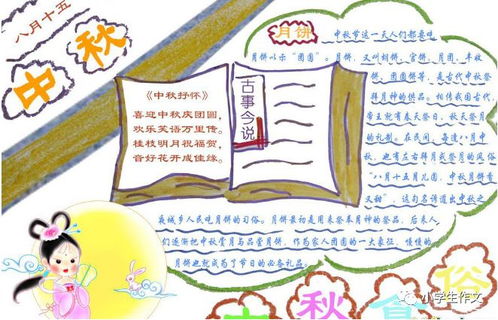 八月十五
中秋
《中秋抒怀》
喜迎中秋庆团圆，
欢乐芙语万里传。
桂枝明月祝福贺，
音好花开成佳缘。
古事今说
月饼
中秋节这一天人们都要吃
月饼以示“团圆”。月饼，又叫胡饼、宫饼、月团、丰收
饼、团圆饼等，是古代中秋祭
拜月神的供品。相传我国古代，
帝王就有春天祭日、秋天祭月
的礼制。在民间，每逢八月中
秋，也有左右拜月或祭月的风俗
“八月十五月儿圆，中秋月饼香
又甜”，这句名谚道出中秋之
夜城乡人民吃月饼的习俗。月饼最初是用来祭奉月神的祭品，后来人
们逐渐把中秋赏月与品尝月饼，作为家人团圆的一大象征，慢慢的
月饼也就成为了节日的必备礼品。
秋食俗
小学生作文